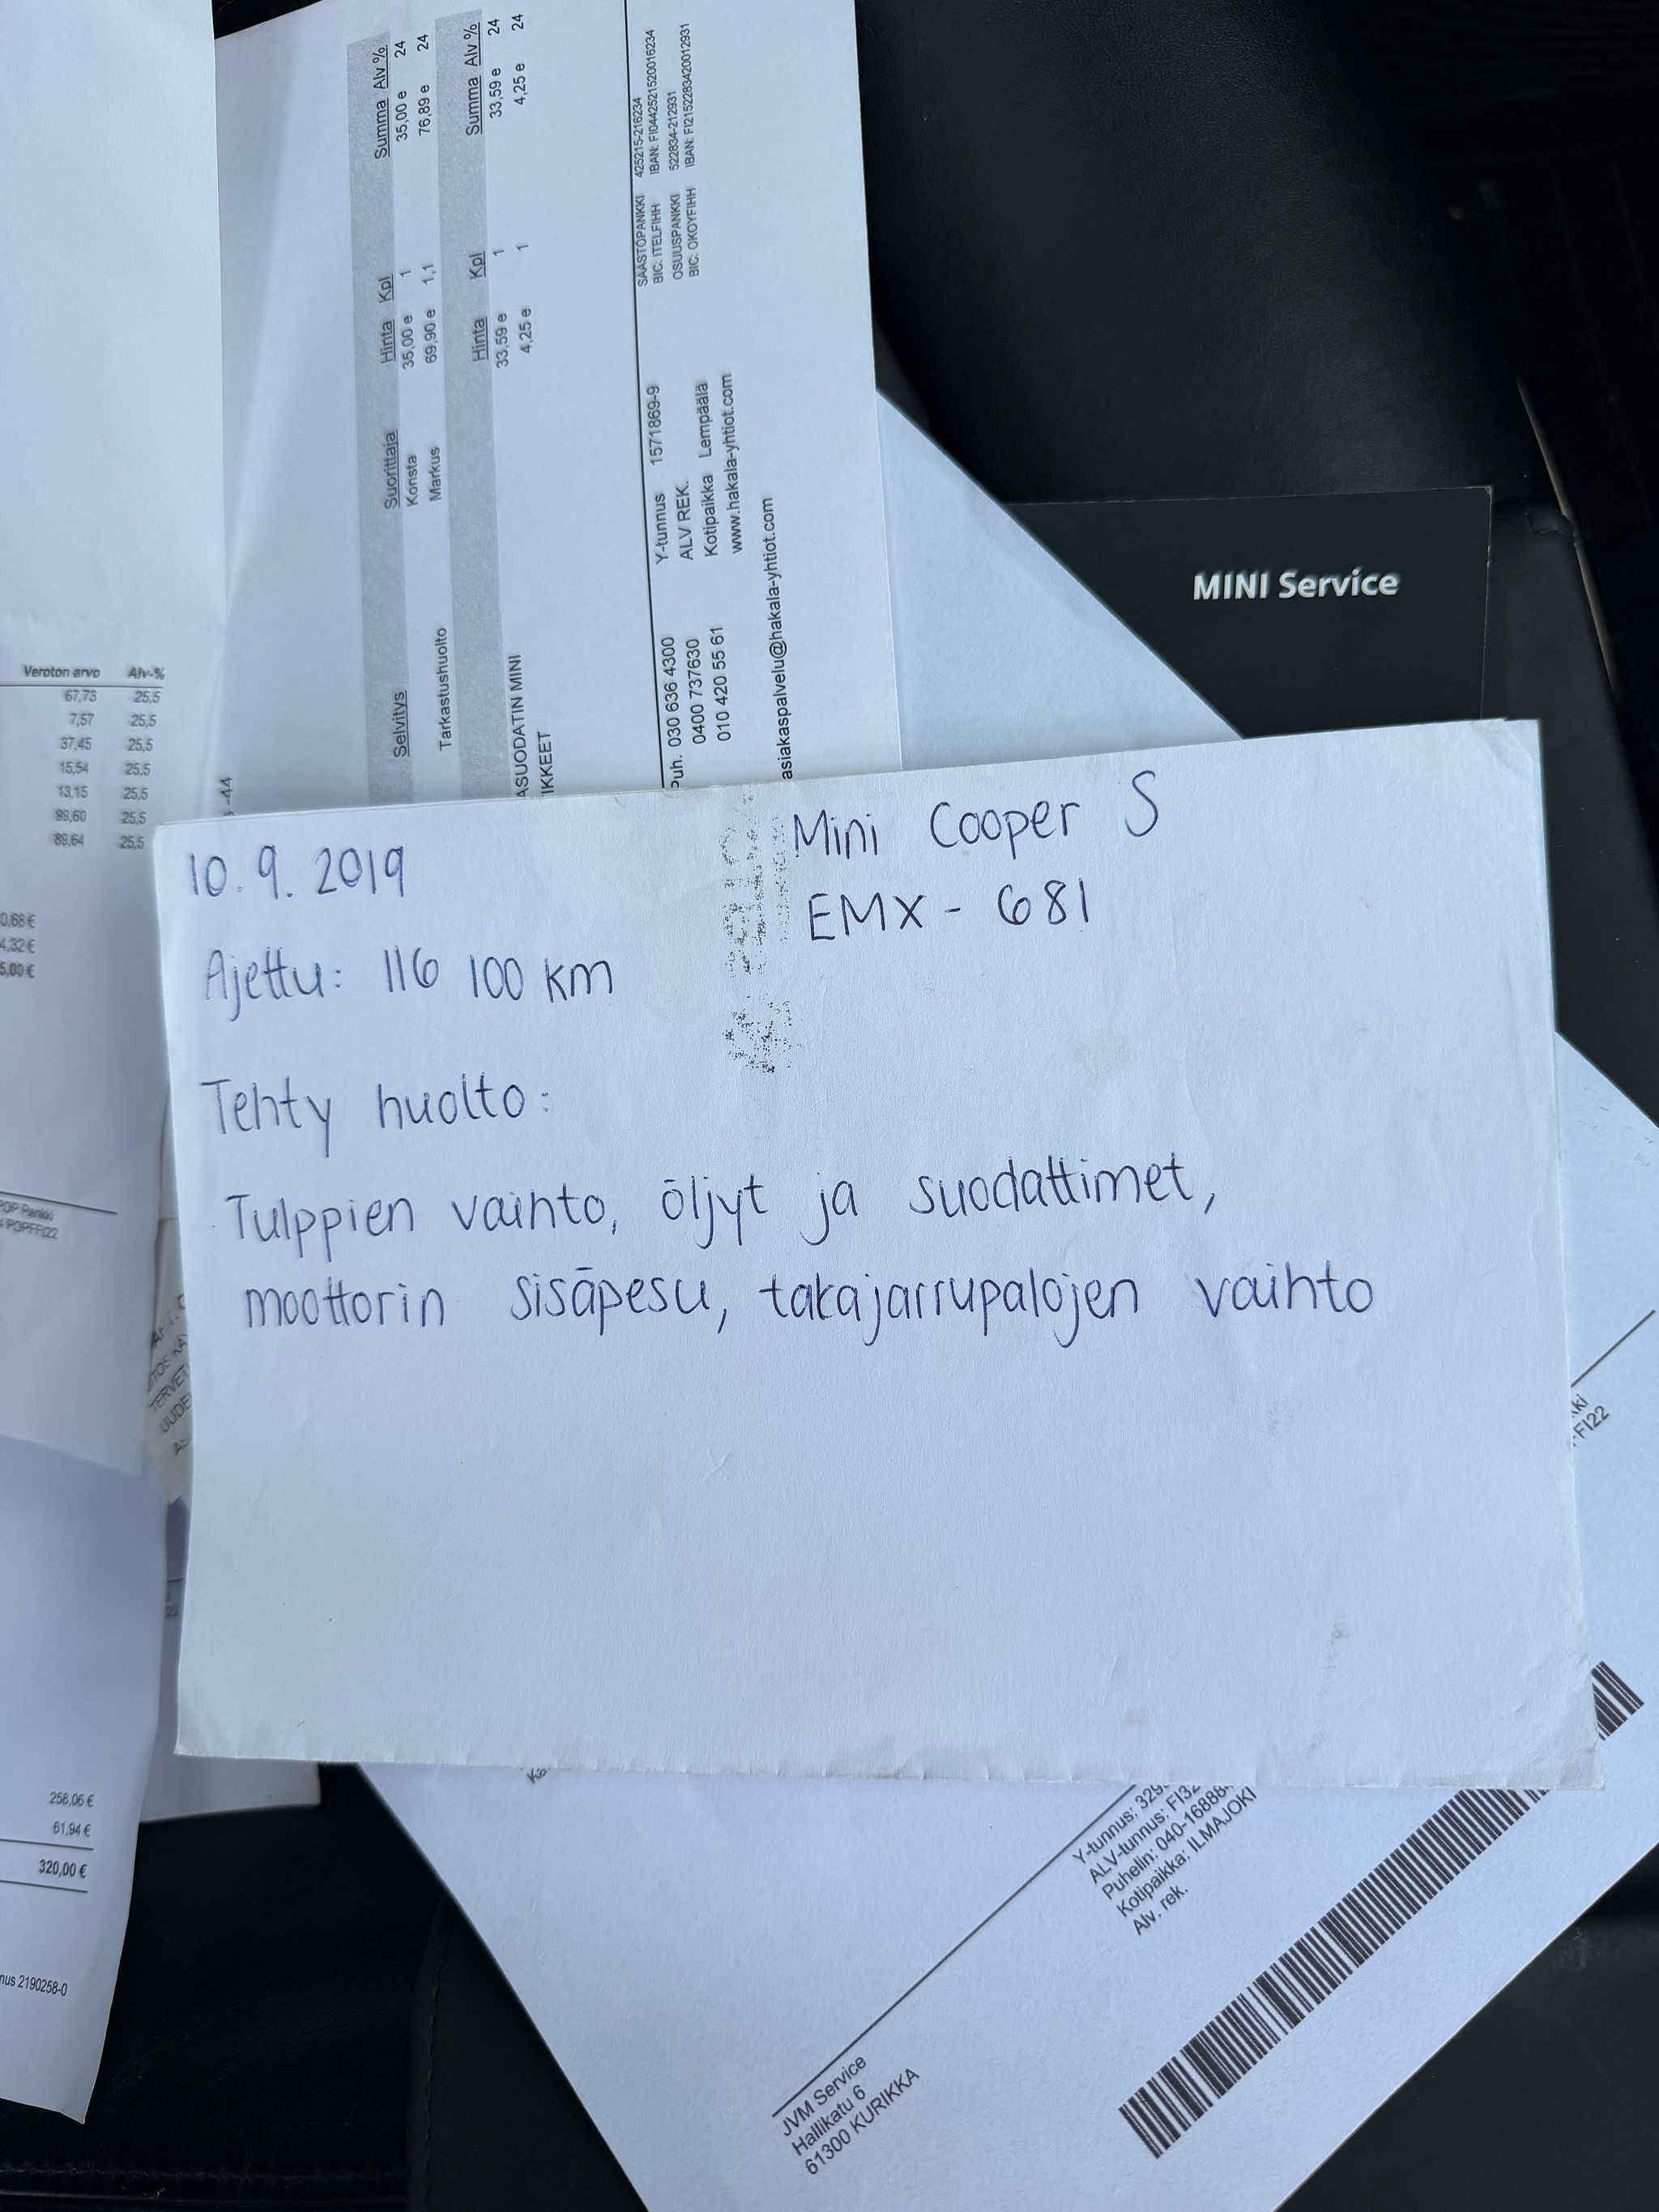 10.9.2019
Mini Cooper S
EMX-681
Ajettu: 116 100 km
Tehty huolto:
Tulppien vaihto, öljyt ja suodattimet,
moottorin sisäpesu, takajarrupalojen vaihto
MINI Service
Selvitys Suorittaja Hinta Kpl Summa Alv %
Konsta 35,00 e 1 35,00 e 24
Tarkastushuolto Markus 69,90 e 1,1 76,89 e 24
Hinta Kpl Summa Alv %
ASUODATIN MINI 33,59 e 1 33,59 e 24
IKKEET 4,25 e 1 4,25 e 24
Puh. 030 636 4300 Y-tunnus 1571869-9 SÄÄSTÖPANKKI 425215-216234
0400 737630 ALV REK. BIC: ITELFIHH IBAN: FI0442521520016234
010 420 55 61 Kotipaikka Lempäälä OSUUSPANKKI 522834-212931
www.hakala-yhtiot.com BIC: OKOYFIHH IBAN: FI2152283420012931
asiakaspalvelu@hakala-yhtiot.com
-44
Veroton arvo Alv-%
67,73 25,5
7,57 25,5
37,45 25,5
15,54 25,5
13,15 25,5
99,60 25,5
89,64 25,5
0,68 €
4,32 €
5,00 €
POP Pankki
POPFFI22
TERVET
UUDE
258,06 €
61,94 €
320,00 €
nus 2190258-0
Y-tunnus: 329
ALV-tunnus: FI32
Puhelin: 040-16888
Kotipaikka: ILMAJOKI
Alv. rek.
JVM Service
Hallikatu 6
61300 KURIKKA
kki
FI22